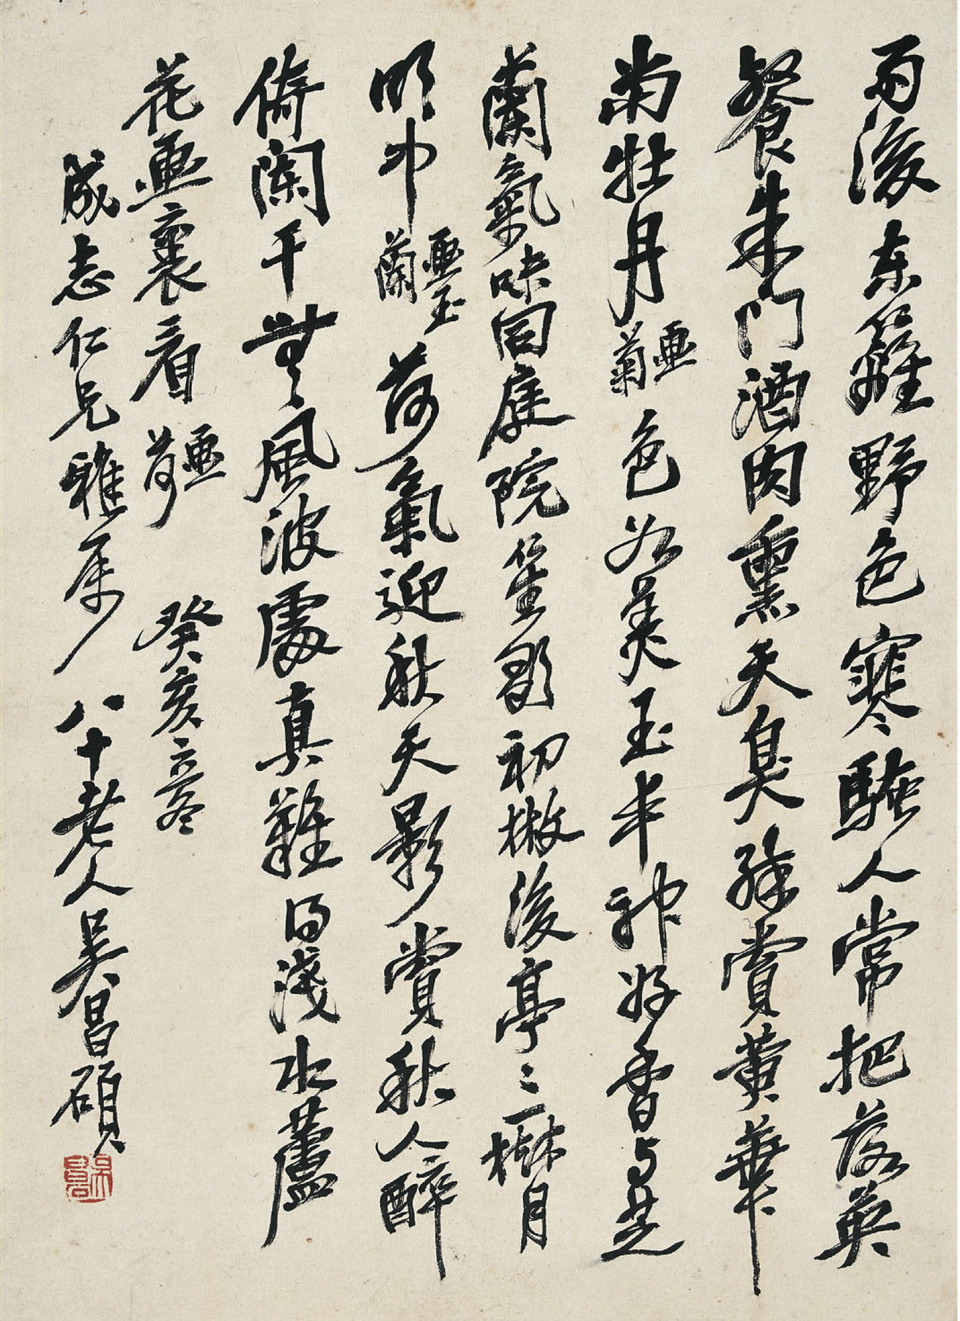 雨後東籬野色寒騷人常把落英
餐朱門酒肉熏天臭孫賞黃華
當牡丹畫菊色如美玉半神好香與芝
蘭氣味同庭院笙歌初撤後亭亭一樹月
明中畫玉蘭荷氣迎秋天影賞秋人醉
倚闌干無風波處真難得淺水蘆
花畫裏看畫荷癸亥冬
成志仁兄雅屬八十老人吳昌碩